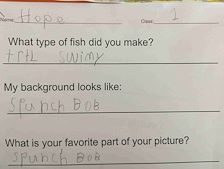 Name: Hope Class: 1
What type of fish did you make?
trtl swimy
My background looks like:
Spunch BOB
What is your favorite part of your picture?
Spunch BOB